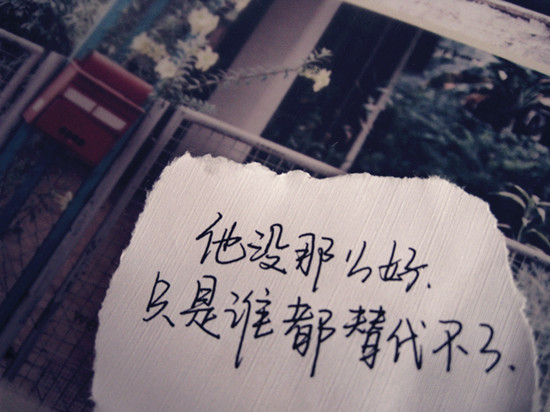 他没那么好.
只是谁都替代不了.